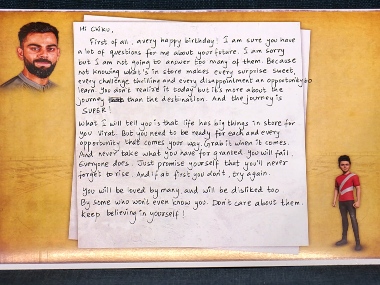 Hi CHIKU,
First of all, a very happy birthday! I am sure you have
a lot of questions for me about your future. I am sorry
but I am not going to answer too many of them. Because
not knowing what's in store makes every surprise sweet,
every challenge thrilling and every disappointment an opportunity to
learn. You don't realize it today but it's more about the
journey than the destination. And the journey is
SUPER!
What I will tell you is that life has big things in store for
you Virat. But you need to be ready for each and every
opportunity that comes your way. Grab it when it comes.
And never take what you have for granted. You will fail.
Everyone does. Just promise yourself that you'll never
forget to rise. And if at first you don't, try again.
You will be loved by many and will be disliked too
By some who won't even know you. Don't care about them.
Keep believing in yourself!